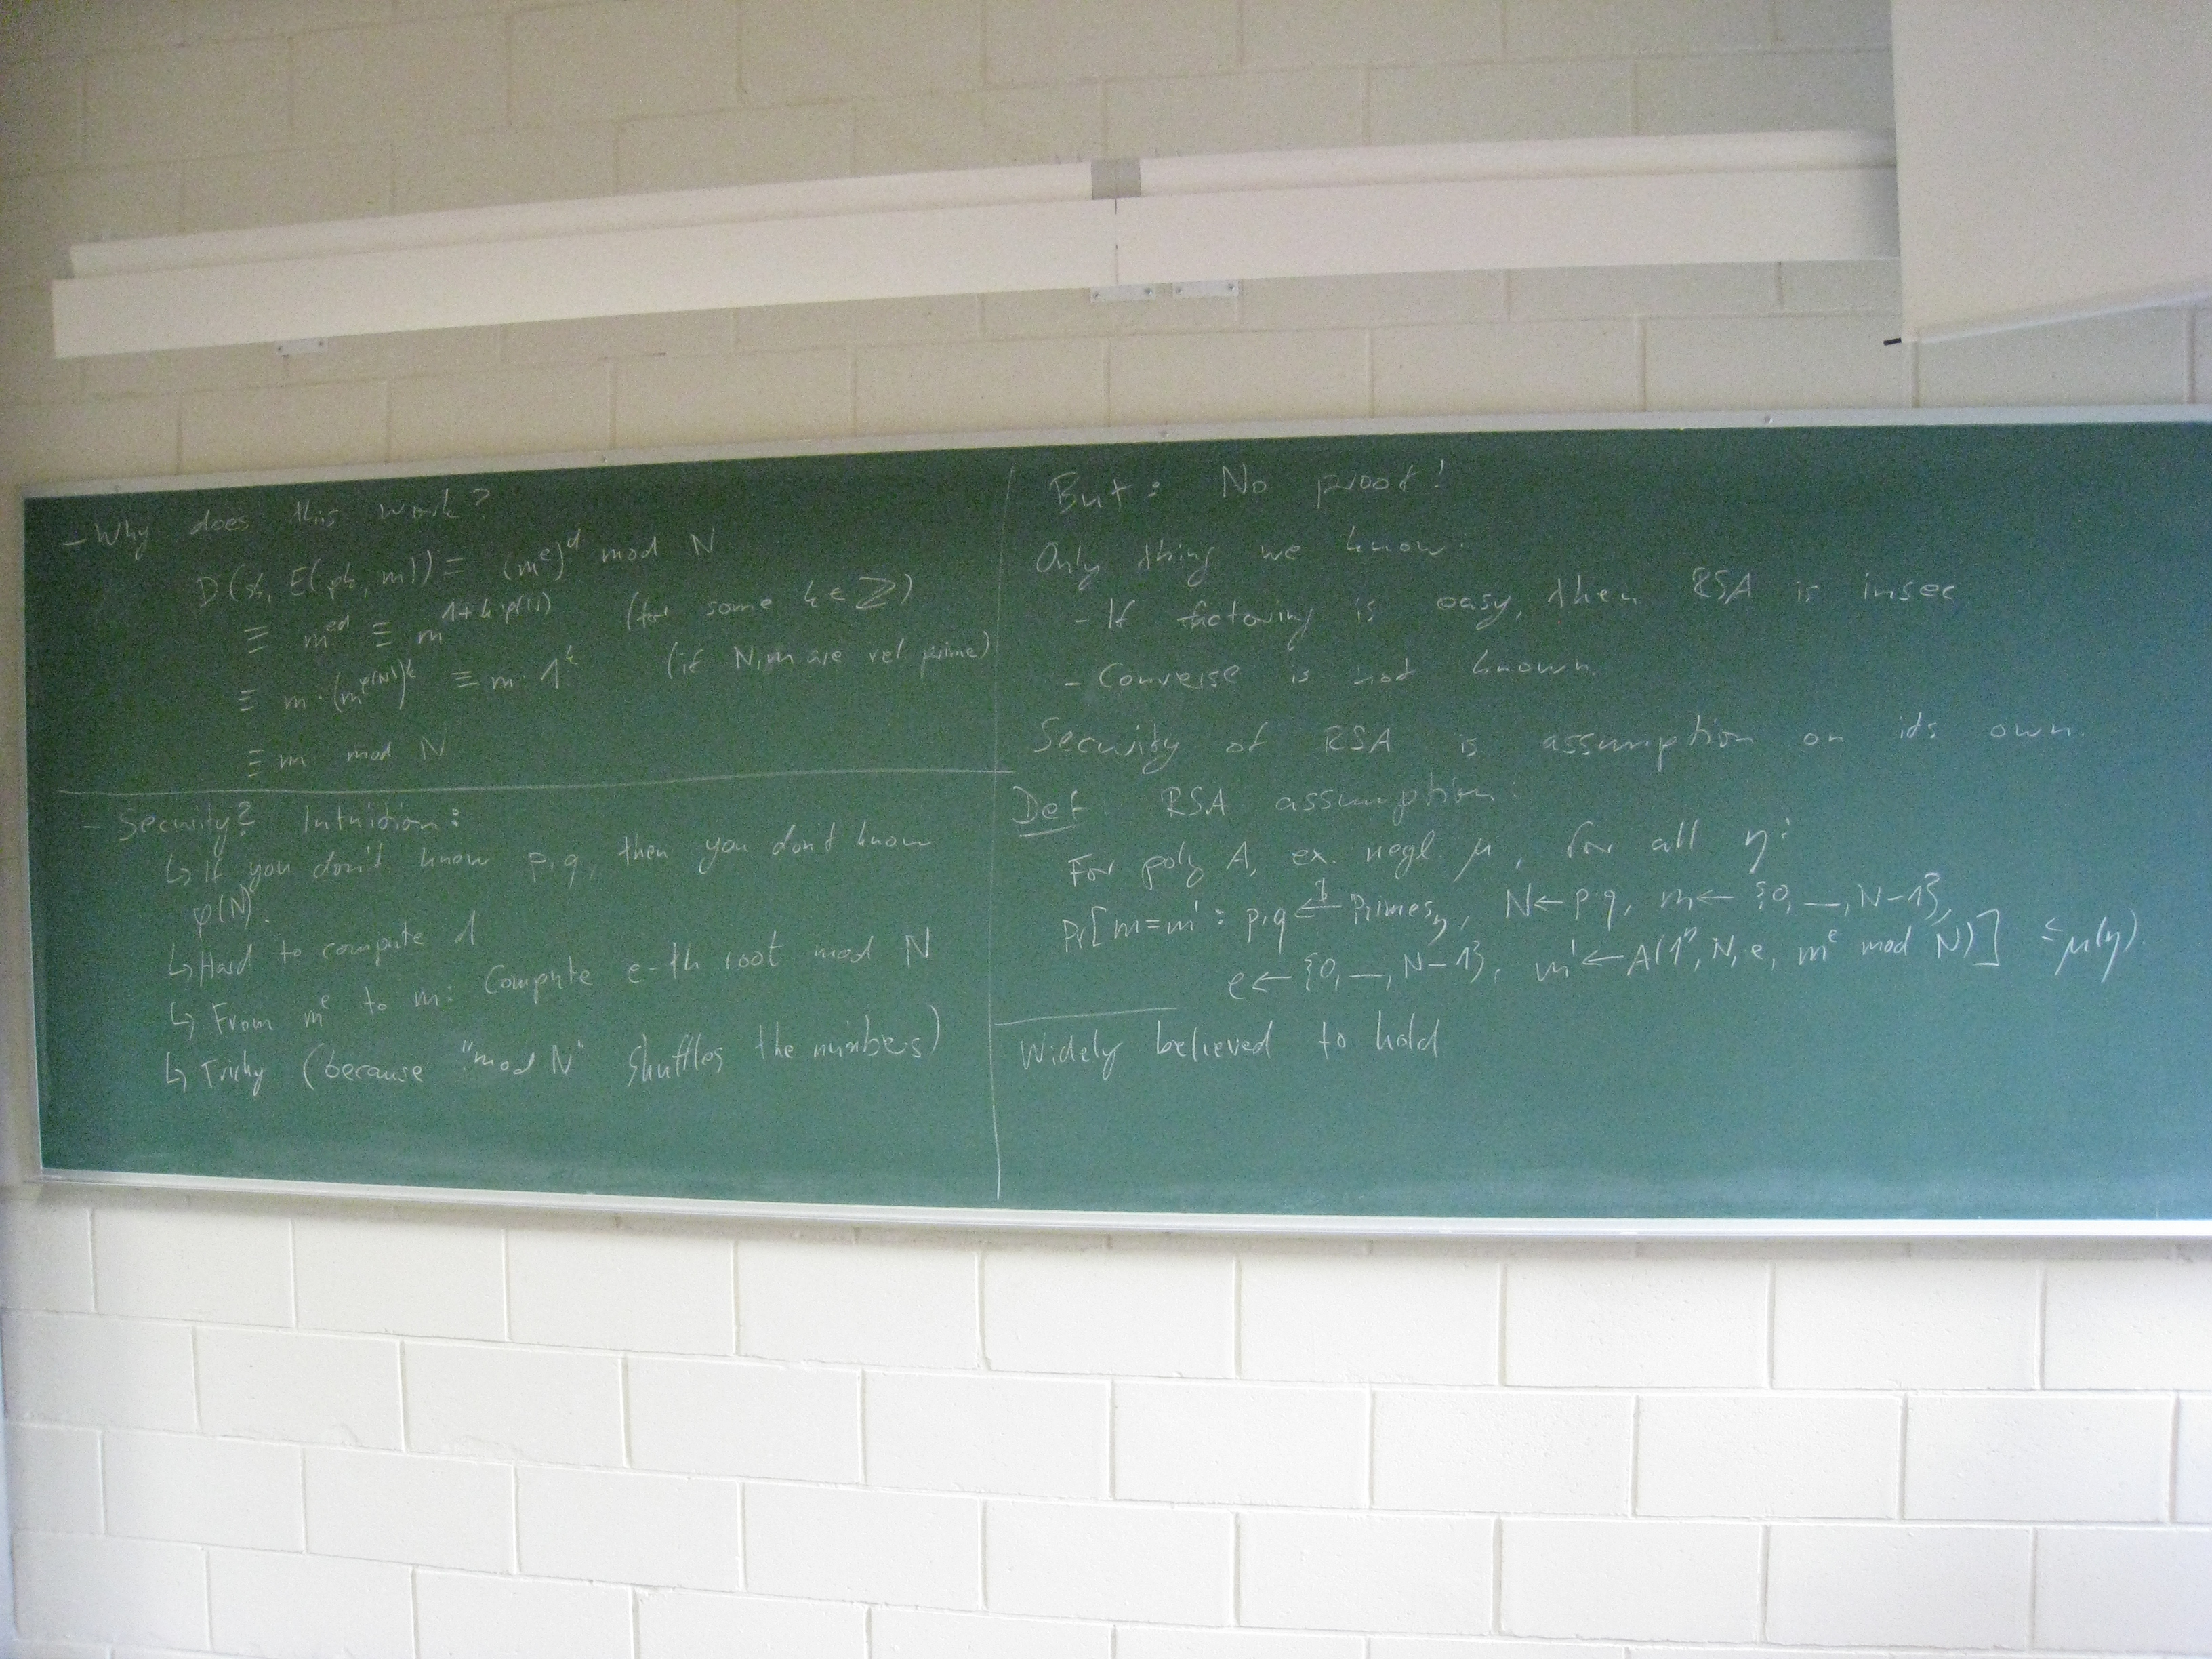 - Why does this work?
D(sk, E(pk, m)) = (m^e)^d mod N
≡ m^ed ≡ m^1+kφ(N) (for some k ∈ ℤ)
≡ m·(m^φ(N))^k ≡ m·1^k (if N,m are rel. prime)
≡ m mod N
- Security? Intuition:
↳ If you don't know p,q, then you don't know
φ(N).
↳ Hard to compute d
↳ From m^e to m: Compute e-th root mod N
↳ Tricky (because "mod N" shuffles the numbers)
But: No proof!
Only thing we know:
- If factoring is easy, then RSA is insec.
- Converse is not known.
Security of RSA is assumption on its own.
Def: RSA assumption:
For poly A, ex. negl μ, for all η:
Pr[m=m' : p,q ←$ Primes_η, N←pq, m←{0,—,N-1},
e←{0,—,N-1}, m'←A(1^η, N, e, m^e mod N)] ≤ μ(η).
Widely believed to hold